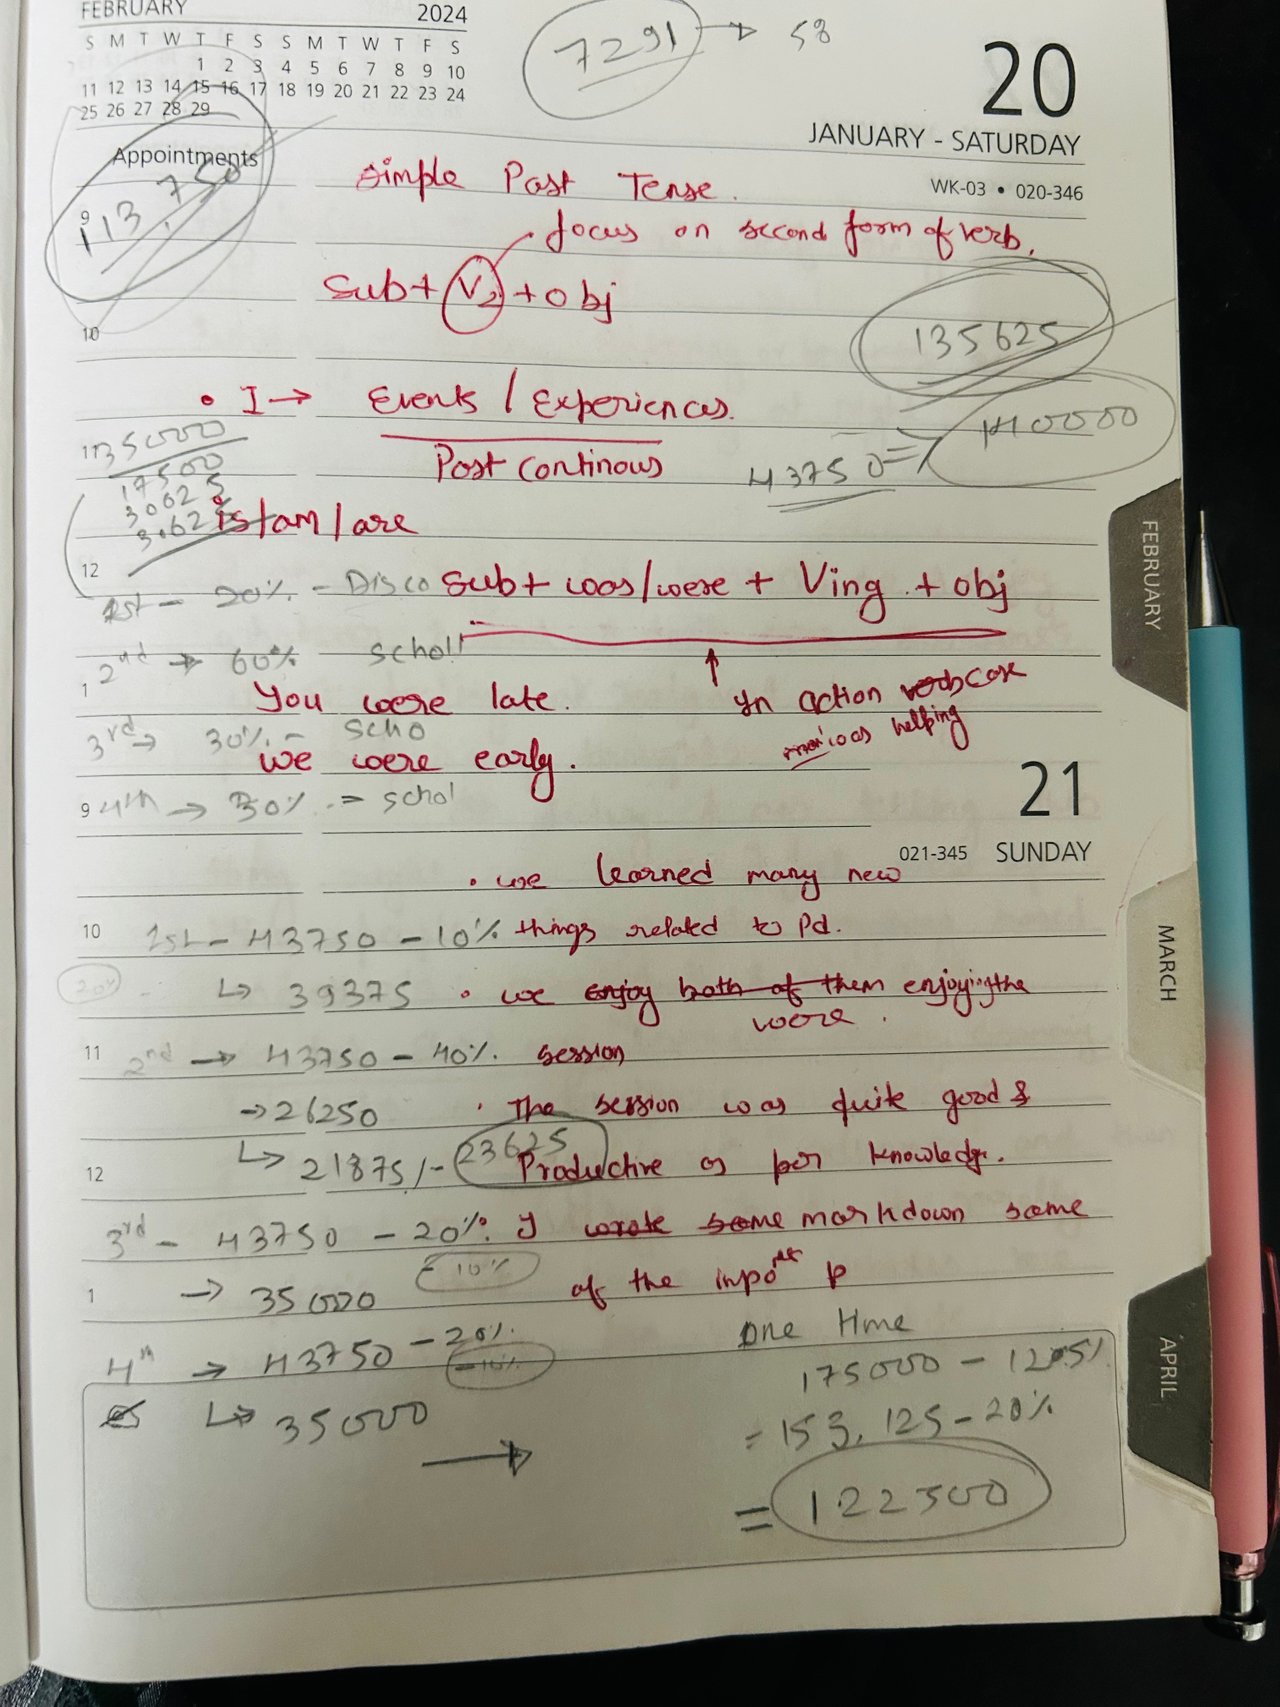 FEBRUARY 2024
S M T W T F S S M T W T F S
1 2 3 4 5 6 7 8 9 10
11 12 13 14 15 16 17 18 19 20 21 22 23 24
25 26 27 28 29
7291 → 58
20
JANUARY - SATURDAY
WK-03 • 020-346
Appointments
113,750
9
Simple Past Tense.
focus on second form of verb.
Sub + V2 + obj
10
135625
• I → Events / Experiences.
140000
11
35000
17500
30625
30625
Past continous
43750 =>
is/am/are
12
1st - 20% - Disco
Sub + was/were + Ving + obj
2nd → 60% scholl
1
You were late.
In action verb case
3rd → 30% - scho
was helping
we were early.
9
4th → 30% = schol
21
021-345 SUNDAY
• we learned many new
10
1st - 43750 - 10%
things related to Pd.
20%
↳ 39375
• we enjoy both of them enjoying the
were.
11
2nd → 43750 - 40%.
session
→ 26250
• The session was quite good &
↳ 21875/- 23625
12
Productive as per knowledge.
3rd - 43750 - 20%.
I wrote some markdown some
- 10%
1
→ 35000
of the impo p
4th → 43750 - 20%.
- 10%
↳ 35000
→
One time
175000 - 12.5%
= 153,125 - 20%
= 122500
FEBRUARY
MARCH
APRIL